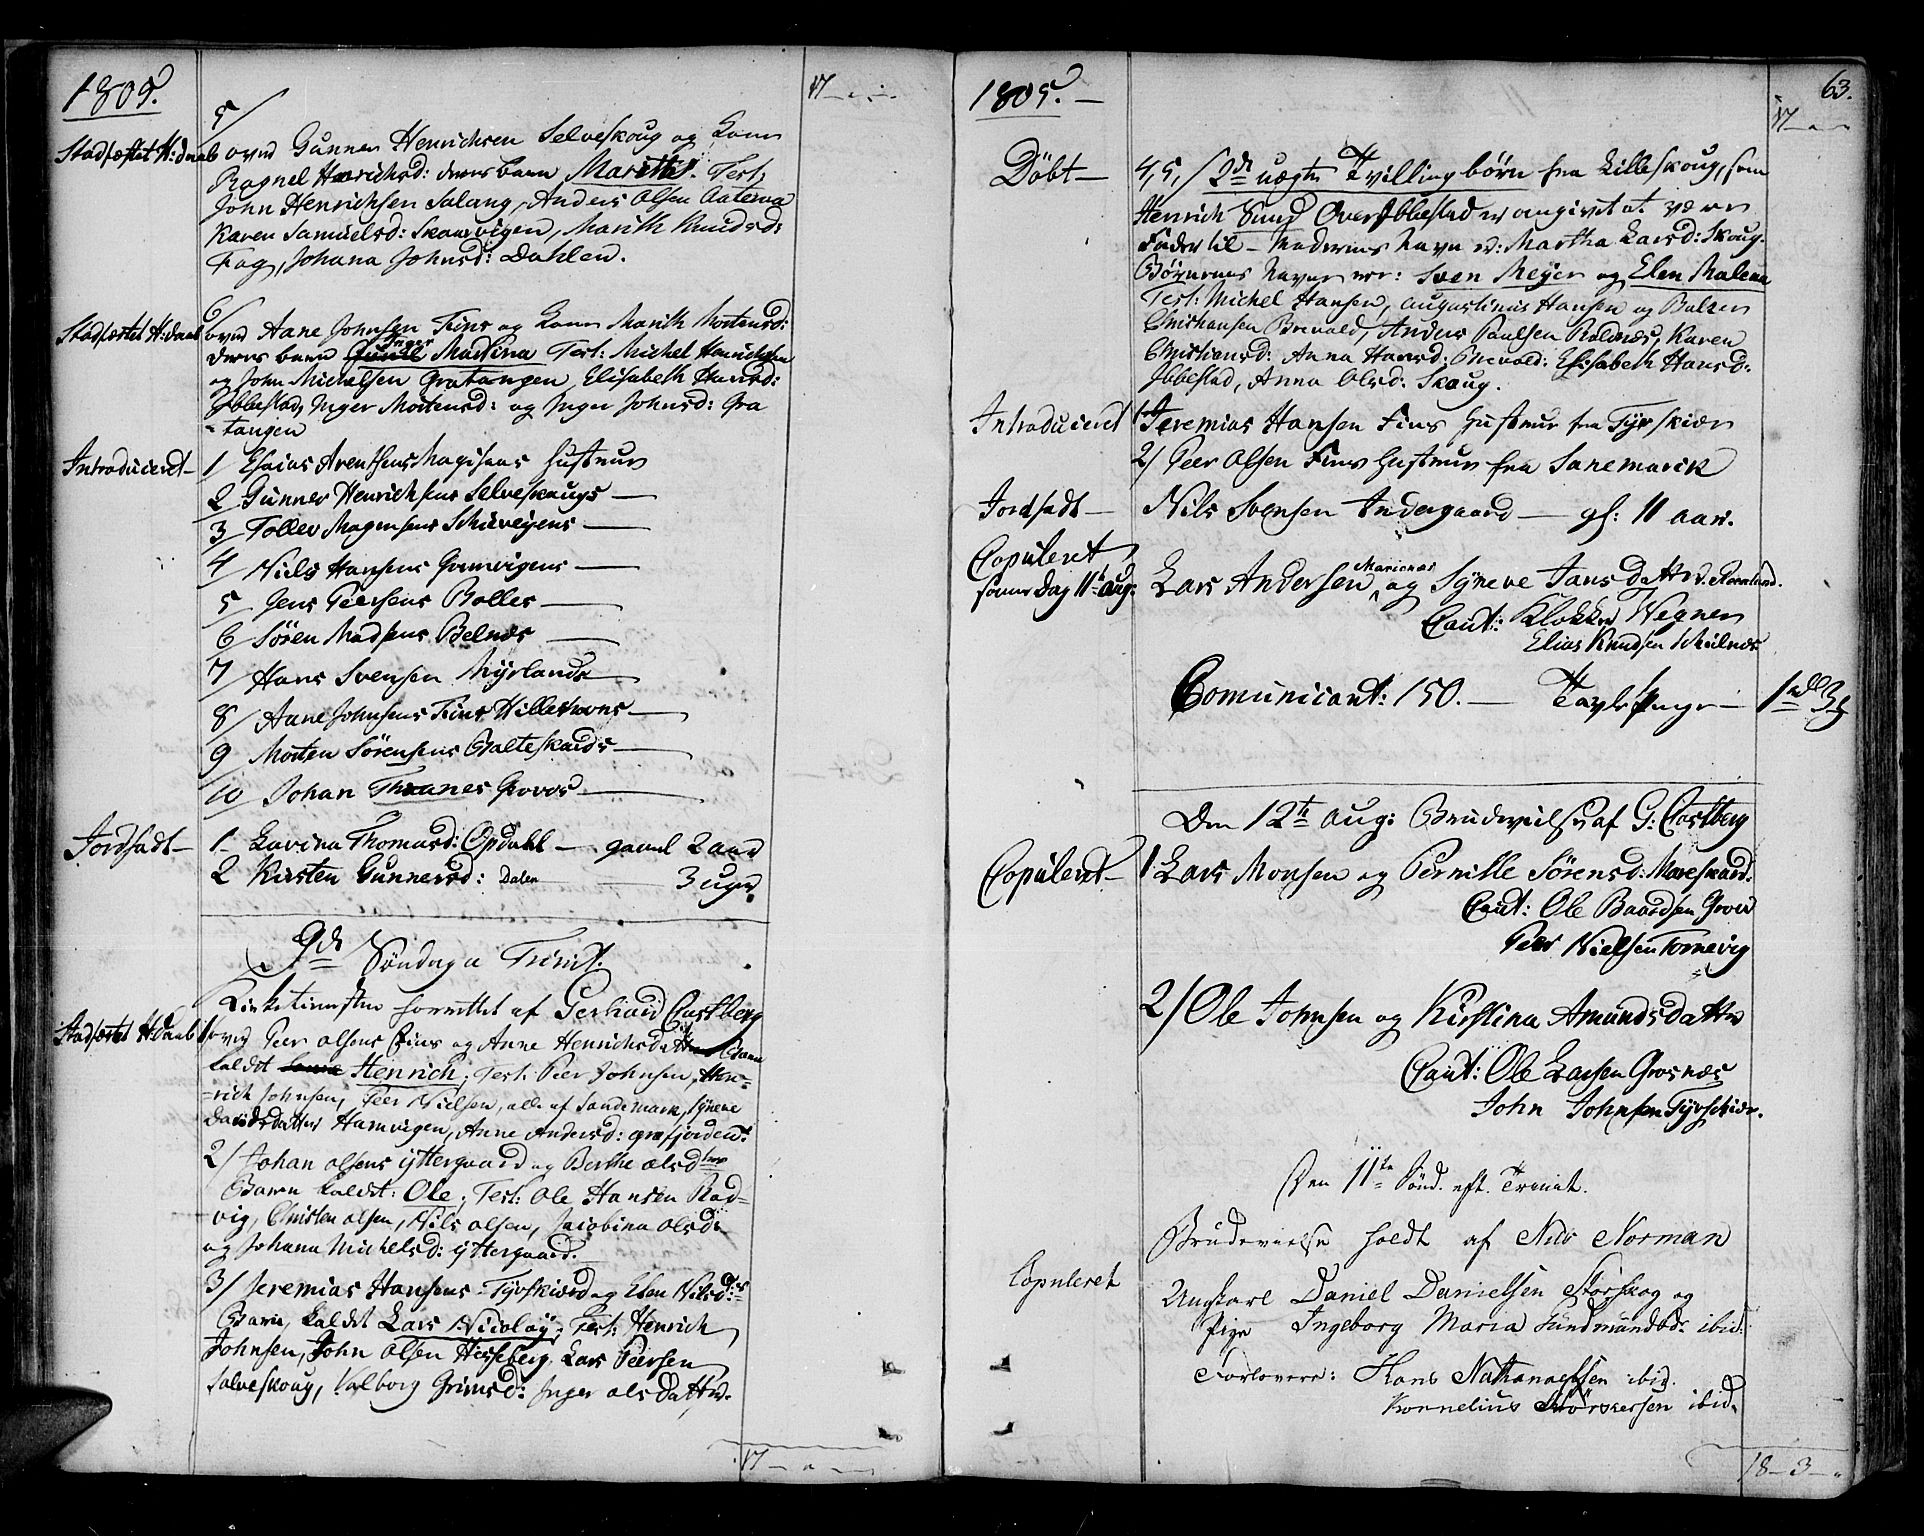 1805.
17 - " -
5/
Stadfæstet H: daab
over Gunner Henrichsen Selveskoug og Kone
Ragnel Henrichsd: deres barn Marith. Test:
John Henrichsen Salang, Anders Olsen
Karen Samuelsd: Skaarvigen, Marith Knudsd:
Fog, Johana Johnsd: Dahlen.
6/
Stadfæstet H: daab
over Aane Johnsen Fins og Kone Marith Mortensd:
deres barn Inger Madlina Test: Michel Henrichsen
og John Michelsen Gratangen, Elisabeth Hansd:
Ibbestad, Inger Mortensd: og Inger Johnsd: Gra
-tangen
Introduceret - 1 Esaias Arentsens Magisens hustrue
2 Gunner Henrichsens Selveskougs —
3/ Toller Mogensens Schuevigens —
4/ Niels Hansens Grunvigens —
5/ Jens Peersens Bolles —
6/ Sören Madsens Belnæs —
7/ Hans Svensen Myrlands —
8/ Aane Johnsens Fins Hilleshavns —
9/ Morten Sörensens Balteskards —
10/ Johan Thranes Grovos —
Jordfadt - 1 - Lavina Thomasd: Opdahl — gaml 2 aar
2 Kirsten Gunnersd: Dalen — 3 uger
9de Söndag a Trinit.
Kirketienesten forrettet af Gerhard Castberg
Stadfæstet H: Daab 1/ over Peer Olsens Fins og Anne Henrichsdatter Barn
kaldt Henrich; Test: Peer Johnsen, Hen-
-rich Johnsen, Peer Nielsen, alle af Sandemark, Syneve
Davidsdatter Hamvigen, Anne Andersd: græsfjorden.
2/ Johan Olsens yttergaard og Berthe olsdtrs
Barn kaldt: Ole; Test: Ole Hansen Rod-
-vig, Christen olsen, Nils olsen, Jacobina olsd:
og Johana Michelsd: yttergaard.
3/ Jeremias Hansens - Tyvskiær og Elen Nilsd:s
Barn, kaldt Lars Nicolay; Test: Henrich
Johnsen, John olsen Hesseberg, Lars Peersen
Salveskoug, Valborg Grimsd: Inger olsdatter.
17 - " -
1805. -
63.
17 - " -
Döbt - 4, 5, / 2de uægte Tvillingbörn fra Lilleskoug, som
Henrich Sund Over Ibbestad er angivet at være
Fader til - Moderens Navn er: Martha Larsd: Skoug.
Börnenes Navne ere: Sven Meyer og Elen Malena
Test: Michel Hansen, Augustinus Hansen og Balzer
Christiansen Brevold, Anders Paulsen Roldnæs, Karen
Christiansd: Anna Hansd: Brevold: Elisabeth Hansd:
Ibbestad, Anna Olsd: Skoug.
Introduceret 1/ Jeremias Hansen Fins Hustrue fra Tyvskiær
2/ Peer Olsen Fins Hustrue fra Sanemarck
Jordfadt - Nils Svensen Indergaard — gl: 11 aar.
Copuleret
sönndag 11t aug: Lars Andersen Marienæs og Syneve Jansdatter
Caut: Klokker Wegner
Elias Knudsen Schielnæs
Comunicant: 150. — Tavlepenge — 1 rdl 3 s
Den 12te Aug: Brudevielse af G: Castberg
Copuleret - 1. Lars Monsen og Pernille Sörensd: Moreskard.
Caut: Ole Baardsen Grov
Peer Nielsen Tornevig
2/ Ole Johnsen og Kirstina Amundsdatter
Caut: Ole Larsen Grosnæs
John Johnsen Tyvskiær.
Den 11te Sönd. eft. Trinit.
Brudevielse holdt af Nils Norman
Copuleret
Ungkarl Daniel Danielsen Storskog og
pige Ingeborg Maria Sundmandsd: ibid:
Forlovere: Hans Nathanaelsen ibid.
Kornelius ibid.
18 - 3 - "